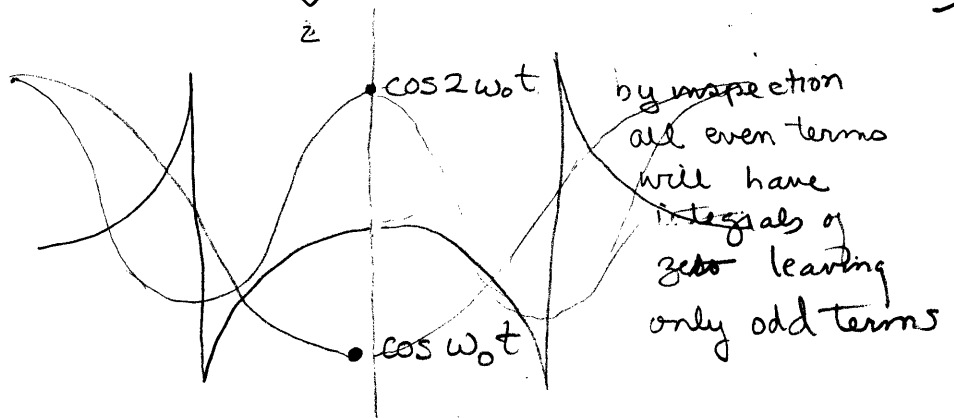 2
cos 2ω₀t
by inspection
all even terms
will have
integrals of
zero leaving
only odd terms
cos ω₀t